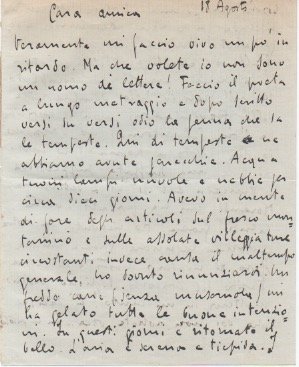 18 Agosto
Cara amica
Veramente mi faccio vivo un pò in
ritardo. Ma che volete io non sono
un uomo da lettere! Faccio il poeta
a lungo metraggio e dopo scritto
versi su versi odio la penna che sa
le tempeste. Qui di tempeste ne
abbiamo avute parecchie. Acqua
tuoni lampi nuvole e nebbie per
circa dieci giorni. Avevo in mente
di fare degli articoli sul fresco mon-
tanino e sulle assolate villeggiature
circostanti invece causa il maltempo
generale, ho dovuto rinunziarvi. Un
freddo cane (senza museruola) mi
ha gelato tutte le buone intenzio-
ni. In questi giorni è ritornato il
bello. L'aria è serena e tiepida.